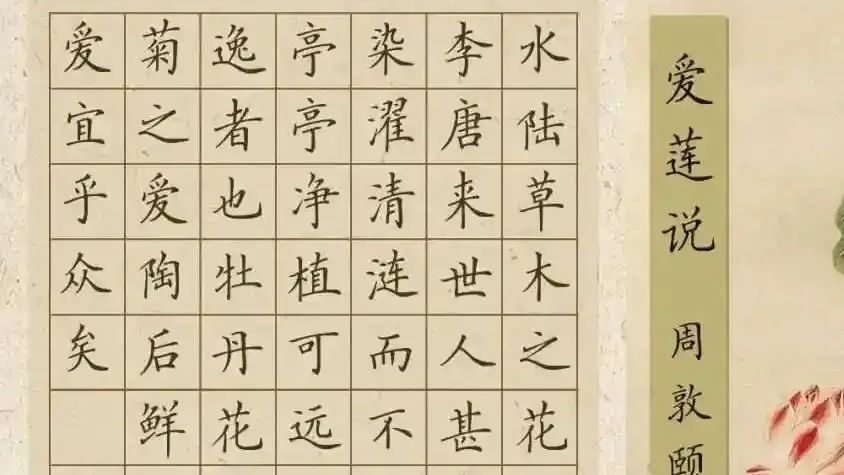 爱莲说 周敦颐
水陆草木之花
李唐来世人甚
染濯清涟而不
亭亭净植可远
逸者也牡丹花
菊之爱陶后鲜
爱宜乎众矣